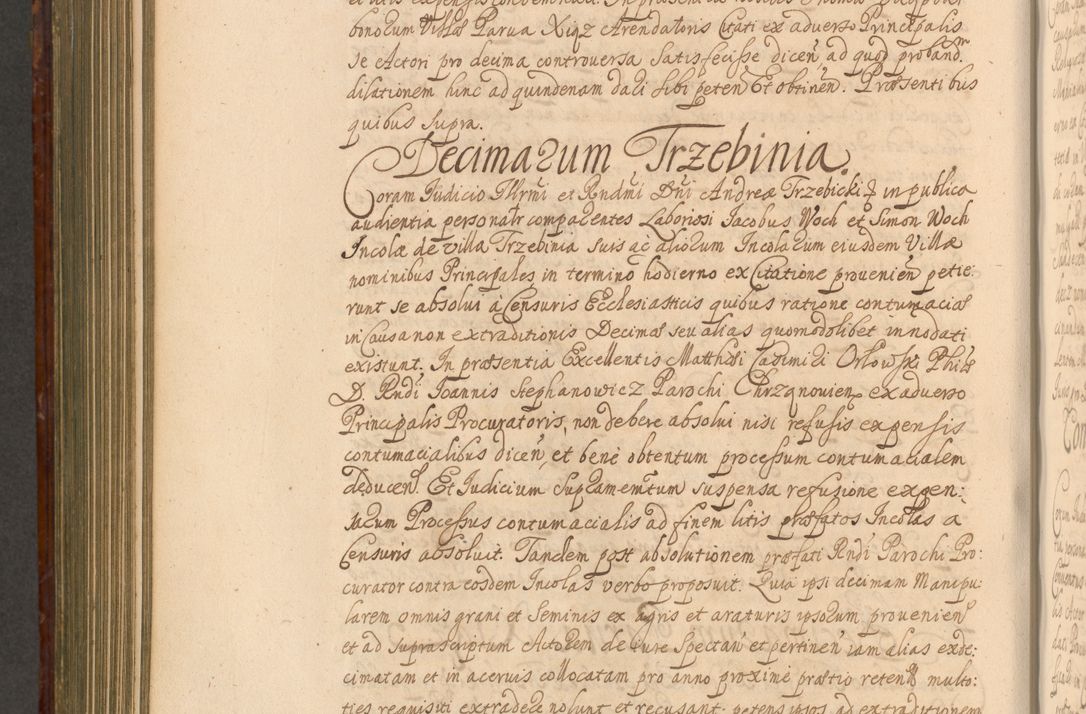 bonorum Villæ Parva Xiąz Arendatoris Citati ex adverso Principalis
se Actori pro decima controversa satisfecisse dicen̄ ad quod proband.
dilationem hinc ad quindenam dari sibi peten̄ Et obtinen̄. Præsentibus
quibus supra.
Decimarum Trzebinia.
Coram Iudicio Illrmi et Rndmi Dni Andreæ Trzebicki & in publica
audientia personalr comparentes Laboriosi Iacobus Woch et Simon Woch
Incolæ de villa Trzebinia suis ac aliorum Incolarum eiusdem Villæ
nominibus Principales in termino hodierno ex Citatione provenien̄ petie:
runt se absolui à Censuris Ecclesiasticis quibus ratione contumaciæ
in Causa non extraditionis Decimæ seu alias quomodolibet innodati
existunt. In præsentia Excellentis Matthiæ Casimiri Orłowski Phiæ
D. Rndi Ioannis Stephanowicz Parochi Chrząnovien ex adverso
Principalis Procuratoris, non debere absolui nisi refusis expensis
contumacialibus dicen̄, et bene obtentum processum contumacialem
deducen̄. Et Iudicium Supramemtum suspensa refusione expen:
sarum Processus contumacialis ad finem litis præfatos Incolas a
Censuris absoluit. Tandem post absolutionem præfati Rndi Parochi Pro:
curator contra eosdem Incolas verbo proposuit. Quia ipsi decimam Manipu:
larem omnis grani et Seminis ex agris et araturis ipsorum provenien̄
et ad suprascriptum Actorem de iure Spectan̄ et pertinen̄ iam alias exde:
cimatam et in acervis collocatam pro anno proxime præterito reten̄ multo:
ties requisiti extradere nolunt et recusant. petens ipsos ad extraditionem